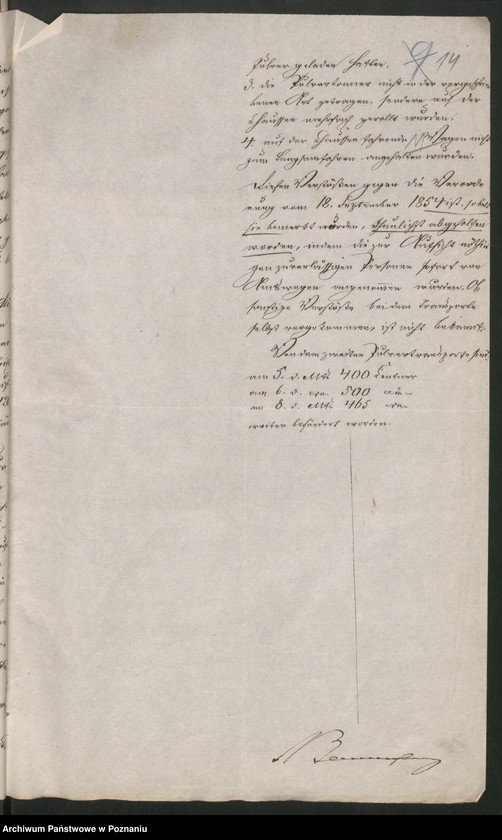 9 14
Pulver geladen hatten.
3. die Pulvertonnen nicht in der vorgeschrie-
benen Art getragen, sondern auf der
Chaussee mehrfach gerollt wurden.
4. auf der Chaussee fahrende Wagen nicht
zum Langsamfahren angehalten wurden.
Diesen Verstößen gegen die Verord-
nung vom 18. September 1854 ist, sobald
sie bemerkt wurden, thunlichst abgeholfen
worden, indem die zur Aufsicht nöthi-
gen zuverlässigen Personen sofort von
angenommen wurden. Ob
sonstige Verstöße bei dem Transporte
selbst vorgekommen, ist nicht bekannt.
Von dem zweiten Pulvertransporte sind
am 5. d. Mts. 400 Centner
am 6. d. 500
am 8. d. Mts. 465
weiter befördert worden.
Archiwum Państwowe w Poznaniu